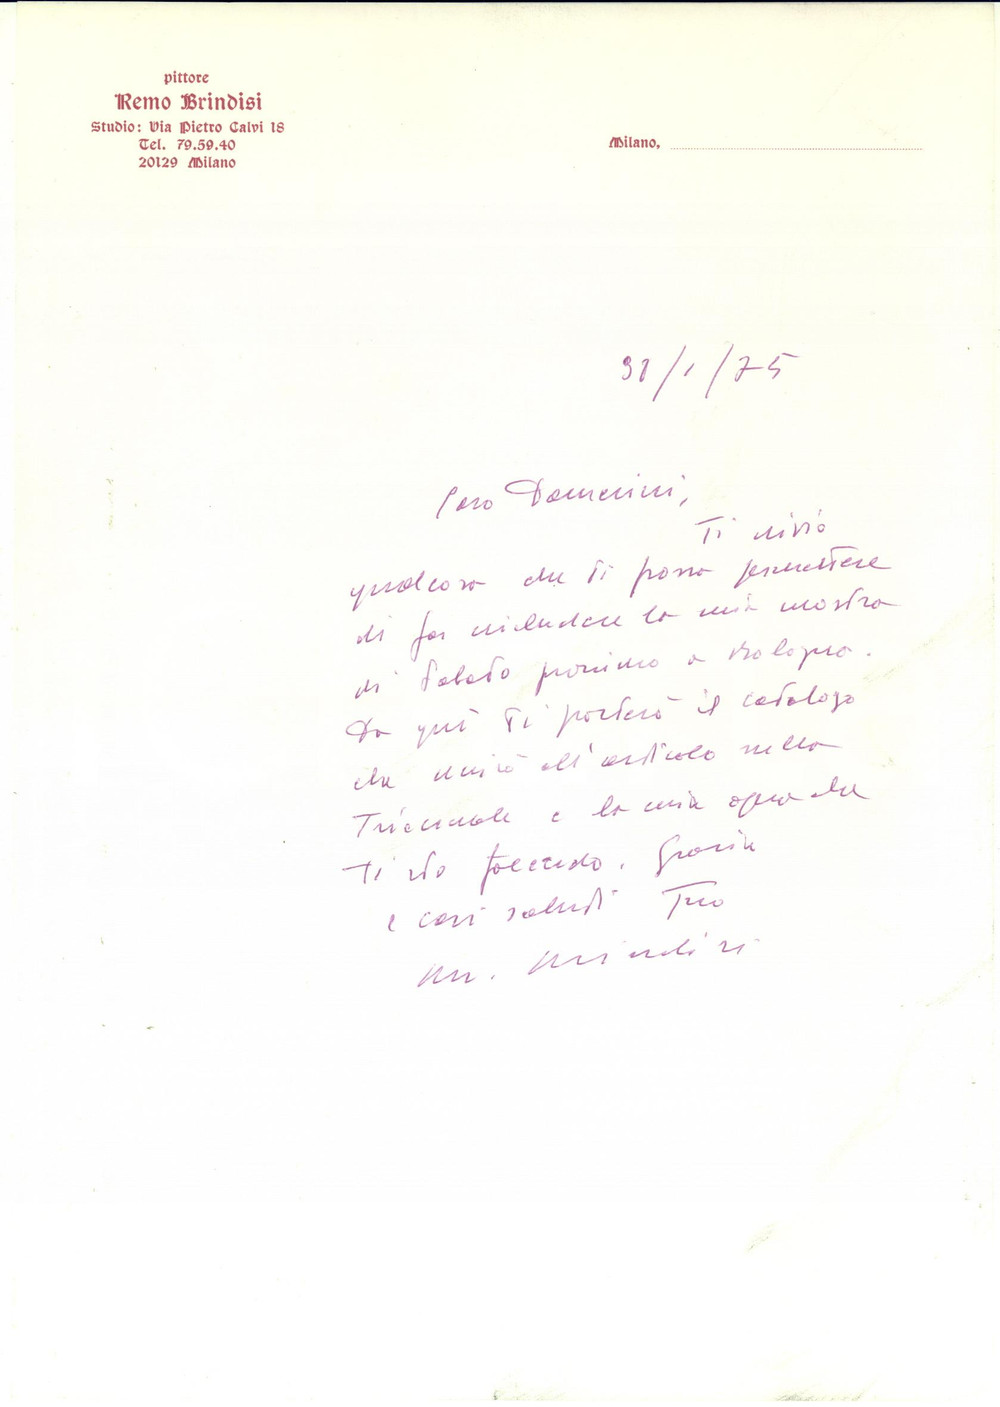 pittore
Remo Brindisi
Studio: Via Pietro Calvi 18
Tel. 79.59.40
20129 Milano
Milano,
31/1/75
Caro Damerini,
Ti invio
qualcosa che ti possa permettere
di far includere la mia mostra
di Sabato prossimo a Bologna.
Da qui ti porterò il catalogo
che unirò all'articolo nella
Triennale e la mia opera che
Ti sto facendo. Grazie
e cari saluti Tuo
Brindisi